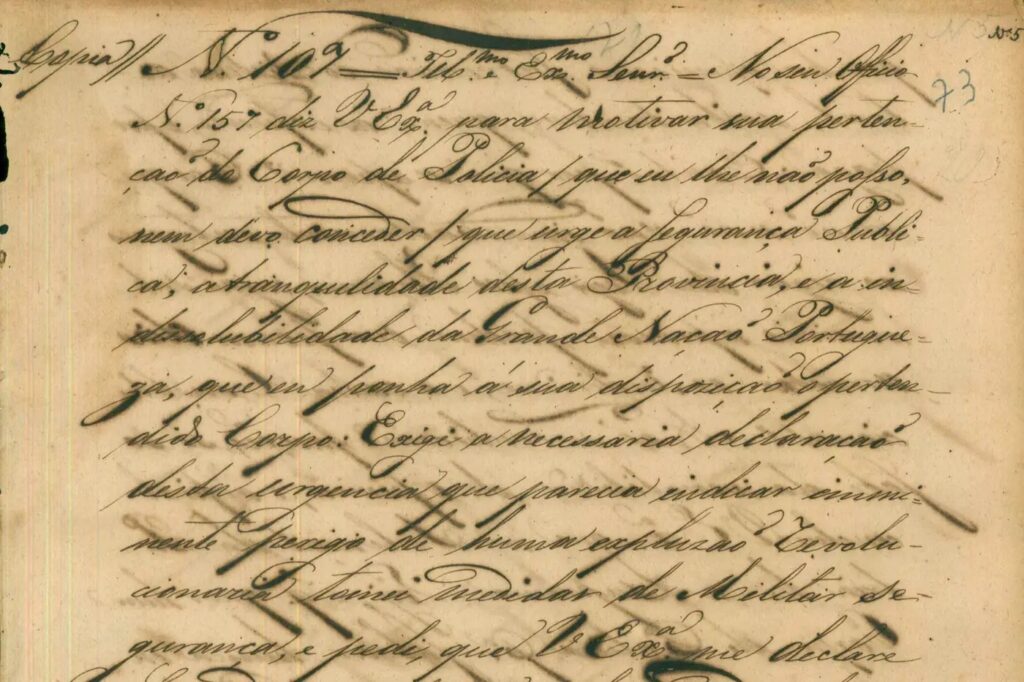 Copia// N.º 109 = Ill.mo e Ex.mo Senr.º = No seu Officio
N.º 157 diz V Ex.ª para motivar sua perten-
çaõ do Corpo de Policia / que eu lhe não posso,
nem devo conceder / que urge a Segurança Publi-
ca, a tranquilidade desta Provincia, e a in-
dissolubilidade da Grande Nacaõ Portugue-
za, que eu ponha á sua dispozicaõ o perten-
dido Corpo: Exigi a necessaria declaracaõ
desta urgencia que parecia indicar immi-
nente perigo de huma expluzaõ Revolu-
cionaria tomei medidas de Militar se-
gurança, e pedi, que V Ex.ª me declare
73
Nº 5